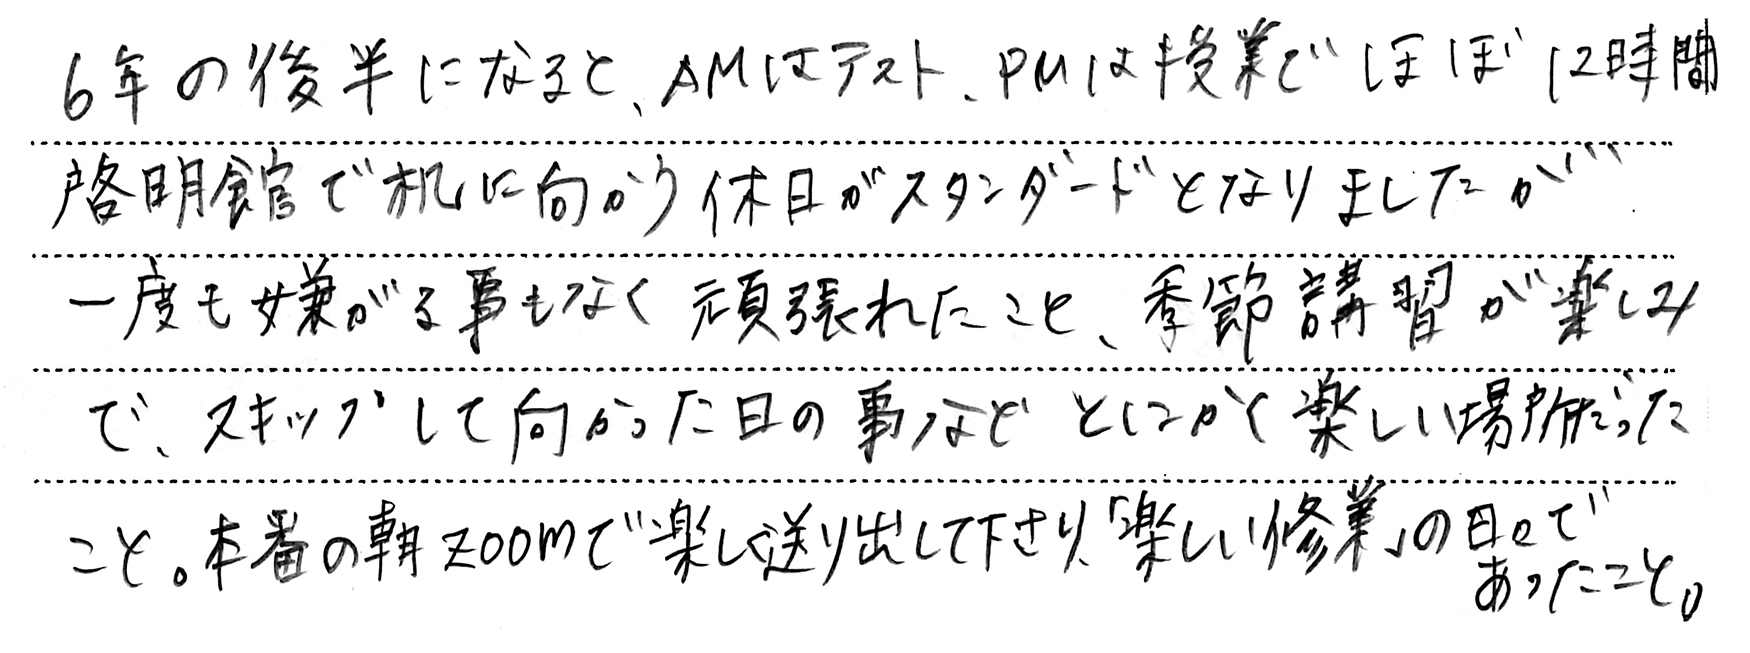 6年の後半になると、AMはテスト、PMは授業でほぼ12時間
啓明館で机に向かう休日がスタンダードとなりましたが
一度も嫌がる事もなく頑張れたこと、季節講習が楽しみ
で、スキップして向かった日の事などとにかく楽しい場所だった
こと。本番の朝ZOOMで楽しく送り出して下さり、「楽しい修業」の日々で
あったこと。